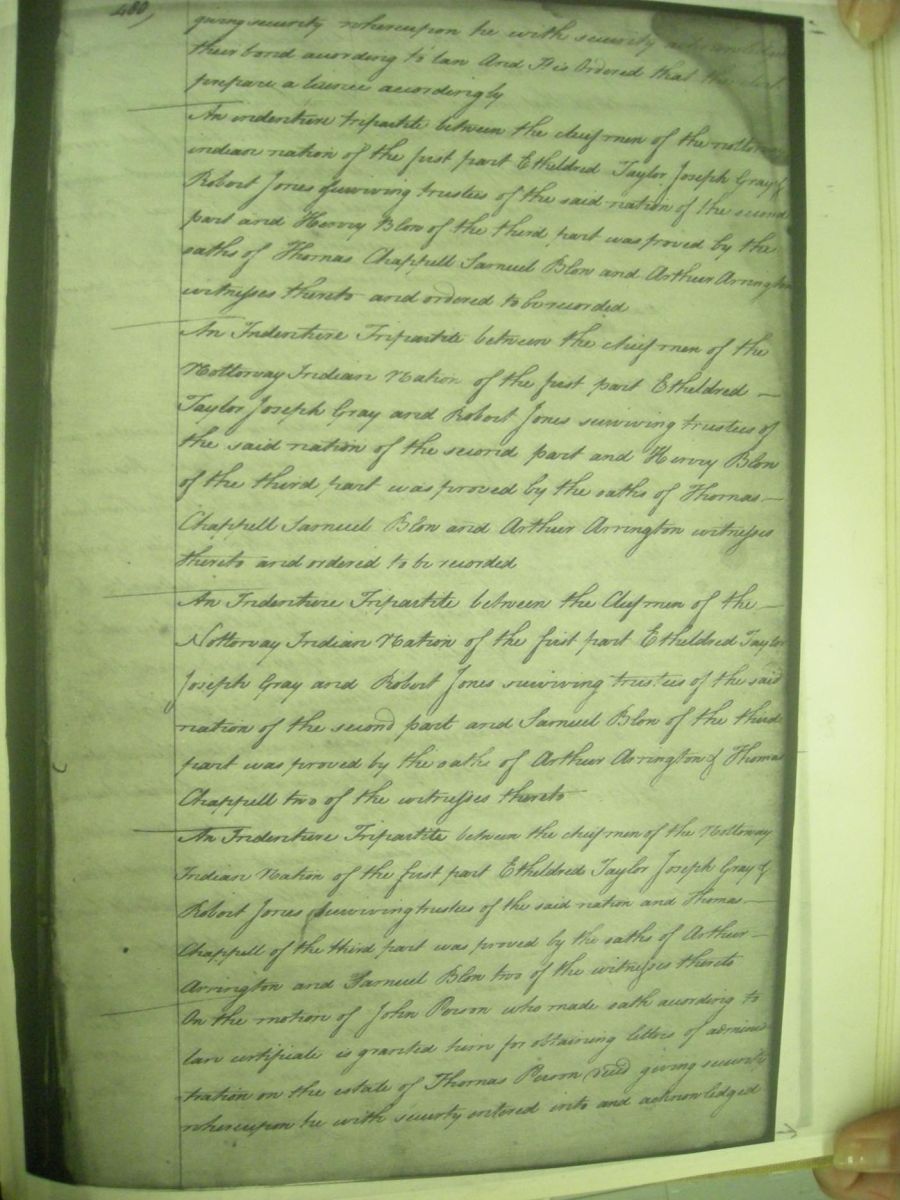 480,
giving security whereupon he with security acknowledged
their bond according to law And It is Ordered that the clerk
prepare a licence accordingly
An indenture tripartite between the chiefmen of the nottoway
indian nation of the first part Etheldred Taylor Joseph Gray &
Robert Jones surviving trustees of the said nation of the second
part and Henry Blow of the third part was proved by the
oaths of Thomas Chappell Samuel Blow and Arthur Arrington
witnesses thereto and ordered to be recorded
An Indenture Tripartite between the chiefmen of the
Nottoway Indian Nation of the first part Etheldred —
Taylor Joseph Gray and Robert Jones surviving trustees of
the said nation of the second part and Henry Blow
of the third part was proved by the oaths of Thomas —
Chappell Samuel Blow and Arthur Arrington witnesses
thereto and ordered to be recorded
An Indenture Tripartite between the Chiefmen of the —
Nottoway Indian Nation of the first part Etheldred Taylor
Joseph Gray and Robert Jones surviving trustees of the said
nation of the second part and Samuel Blow of the third
part was proved by the oaths of Arthur Arrington & Thomas
Chappell two of the witnesses thereto
An Indenture Tripartite between the chiefmen of the Nottoway
Indian Nation of the first part Etheldred Taylor Joseph Gray &
Robert Jones surviving trustees of the said nation and Thomas —
Chappell of the third part was proved by the oaths of Arthur —
Arrington and Samuel Blow two of the witnesses thereto
On the motion of John Person who made oath according to
law certificate is granted him for obtaining letters of adminis
tration on the estate of Thomas Person decd giving security
whereupon he with security entered into and acknowledged